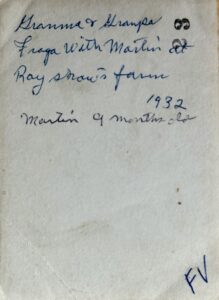 Gramma & Grampa
Fraga with Martin at
Ray shows farm
1932
Martin 9 months old
FV